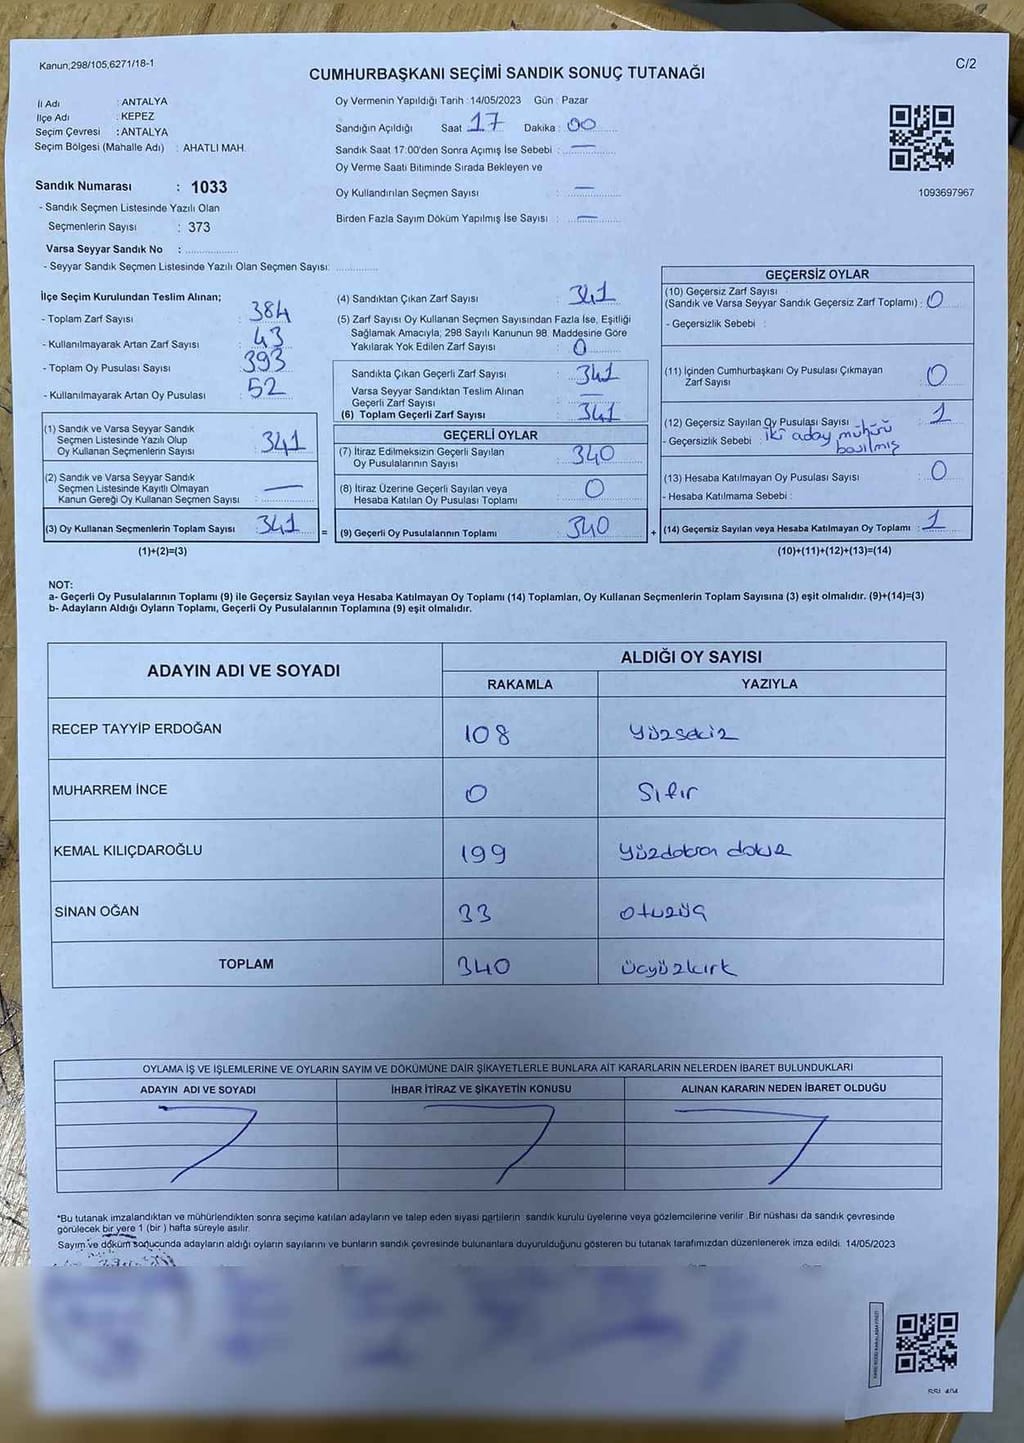 Kanun;298/105,6271/18-1
C/2
CUMHURBAŞKANI SEÇİMİ SANDIK SONUÇ TUTANAĞI
İl Adı : ANTALYA
İlçe Adı : KEPEZ
Seçim Çevresi : ANTALYA
Seçim Bölgesi (Mahalle Adı) : AHATLI MAH.
Oy Vermenin Yapıldığı Tarih : 14/05/2023 Gün : Pazar
Sandığın Açıldığı Saat 17 Dakika : 00
Sandık Saat 17:00'den Sonra Açımış İse Sebebi : —
Oy Verme Saati Bitiminde Sırada Bekleyen ve
Oy Kullandırılan Seçmen Sayısı : —
Birden Fazla Sayım Döküm Yapılmış İse Sayısı : —
1093697967
Sandık Numarası : 1033
- Sandık Seçmen Listesinde Yazılı Olan
Seçmenlerin Sayısı : 373
Varsa Seyyar Sandık No :
- Seyyar Sandık Seçmen Listesinde Yazılı Olan Seçmen Sayısı:
İlçe Seçim Kurulundan Teslim Alınan;
- Toplam Zarf Sayısı : 384
- Kullanılmayarak Artan Zarf Sayısı : 43
- Toplam Oy Pusulası Sayısı : 393
- Kullanılmayarak Artan Oy Pusulası : 52
(1) Sandık ve Varsa Seyyar Sandık
Seçmen Listesinde Yazılı Olup
Oy Kullanan Seçmenlerin Sayısı : 341
(2) Sandık ve Varsa Seyyar Sandık
Seçmen Listesinde Kayıtlı Olmayan
Kanun Gereği Oy Kullanan Seçmen Sayısı : —
(3) Oy Kullanan Seçmenlerin Toplam Sayısı : 341 =
(1)+(2)=(3)
(4) Sandıktan Çıkan Zarf Sayısı : 341
(5) Zarf Sayısı Oy Kullanan Seçmen Sayısından Fazla İse, Eşitliği
Sağlamak Amacıyla, 298 Sayılı Kanunun 98. Maddesine Göre
Yakılarak Yok Edilen Zarf Sayısı : 0
Sandıkta Çıkan Geçerli Zarf Sayısı : 341
Varsa Seyyar Sandıktan Teslim Alınan
Geçerli Zarf Sayısı : —
(6) Toplam Geçerli Zarf Sayısı : 341
GEÇERLİ OYLAR
(7) İtiraz Edilmeksizin Geçerli Sayılan
Oy Pusulalarının Sayısı : 340
(8) İtiraz Üzerine Geçerli Sayılan veya
Hesaba Katılan Oy Pusulası Toplamı : 0
(9) Geçerli Oy Pusulalarının Toplamı : 340 +
GEÇERSİZ OYLAR
(10) Geçersiz Zarf Sayısı
(Sandık ve Varsa Seyyar Sandık Geçersiz Zarf Toplamı) : 0
- Geçersizlik Sebebi :
(11) İçinden Cumhurbaşkanı Oy Pusulası Çıkmayan
Zarf Sayısı : 0
(12) Geçersiz Sayılan Oy Pusulası Sayısı : 1
- Geçersizlik Sebebi : iki aday mühürü
basılmış
(13) Hesaba Katılmayan Oy Pusulası Sayısı : 0
- Hesaba Katılmama Sebebi :
(14) Geçersiz Sayılan veya Hesaba Katılmayan Oy Toplamı : 1
(10)+(11)+(12)+(13)=(14)
NOT:
a- Geçerli Oy Pusulalarının Toplamı (9) ile Geçersiz Sayılan veya Hesaba Katılmayan Oy Toplamı (14) Toplamları, Oy Kullanan Seçmenlerin Toplam Sayısına (3) eşit olmalıdır. (9)+(14)=(3)
b- Adayların Aldığı Oyların Toplamı, Geçerli Oy Pusulalarının Toplamına (9) eşit olmalıdır.
ADAYIN ADI VE SOYADI
ALDIĞI OY SAYISI
RAKAMLA YAZIYLA
RECEP TAYYİP ERDOĞAN 108 yüzsekiz
MUHARREM İNCE 0 Sıfır
KEMAL KILIÇDAROĞLU 199 yüzdoksan dokuz
SİNAN OĞAN 33 otuzüç
TOPLAM 340 üçyüzkırk
OYLAMA İŞ VE İŞLEMLERİNE VE OYLARIN SAYIM VE DÖKÜMÜNE DAİR ŞİKAYETLERLE BUNLARA AİT KARARLARIN NELERDEN İBARET BULUNDUKLARI
ADAYIN ADI VE SOYADI İHBAR İTİRAZ VE ŞİKAYETİN KONUSU ALINAN KARARIN NEDEN İBARET OLDUĞU
*Bu tutanak imzalandıktan ve mühürlendikten sonra seçime katılan adayların ve talep eden siyasi partilerin sandık kurulu üyelerine veya gözlemcilerine verilir .Bir nüshası da sandık çevresinde
görülecek bir yere 1 (bir ) hafta süreyle asılır.
Sayım ve döküm sonucunda adayların aldığı oyların sayılarını ve bunların sandık çevresinde bulunanlara duyurulduğunu gösteren bu tutanak tarafımızdan düzenlenerek imza edildi. 14/05/2023